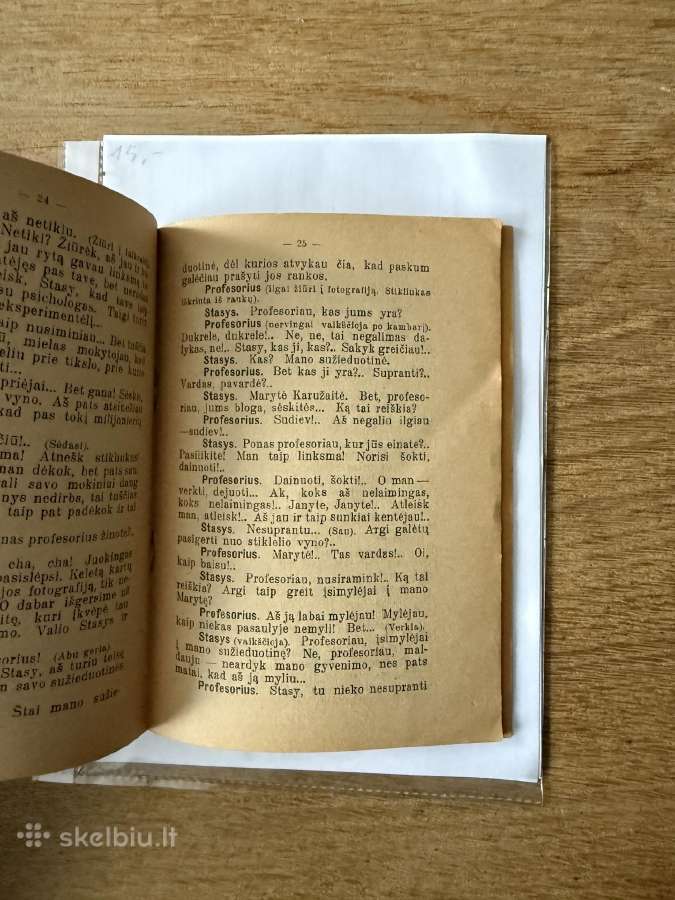 15,-
— 24 —
aš netikiu. (Žiūri į
Netiki? Žiūrėk, aš jau ir be
jau rytą gavau linksmą te-
atėjęs pas tave, bet nerodau
eisk, Stasy, kad tave taip
u psichologas. Taigi turiu
eksperimentėlį...
taip nusiminiau... Bet tuščia
ū, mielas mokytojau,
keliu prie tikslo, prie kurio
priėjai... Bet gana! Sėsk,
vyno. Aš pats atsitčiau
kad pas tokį milijanierių
čiū!.. (Sėdasi).
Atnešk stikliukus
man dėkok, bet pats savo
gali savo mokiniui dang
nys nedirba, tai tuščias
taip pat padėkok ir tai
nas profesorius žinote!..
cha, cha! Juokingas
pasislėpsi. Keletą kartų
jos fotografiją, tik ne-
O dabar išgersime už
itę, kuri įkvėpė tau
imo. Valio Stasys ir
sorius! (Abu geria)
Stasy, aš turiu teisę
n savo sužieduotinės
Štai mano sužie-
— 25 —
duotinė, dėl kurios atvykau čia, kad paskum
galėčiau prašyti jos rankos.
Profesorius (ilgai žiūri į fotografiją. Stikliukas
iškrinta iš rankų).
Stasys. Profesoriau, kas jums yra?
Profesorius (nervingai vaikščioja po kambarį).
Dukrele, dukrele!.. Ne, ne, tai negalimas da-
lykas, ne!.. Stasy, kas ji, kas?.. Sakyk greičiau!..
Stasys. Kas? Mano sužieduotinė.
Profesorius. Bet kas ji yra?.. Supranti?..
Vardas, pavardė?..
Stasys. Marytė Karužaitė. Bet, profeso-
riau, jums bloga, sėskitės... Ką tai reiškia?
Profesorius. Sudiev!.. Aš negaliu ilgiau
—sudiev!..
Stasys. Ponas profesoriau, kur jūs einate?..
Pasilikite! Man taip linksma! Norisi šokti,
dainuoti!..
Profesorius. Dainuoti, šokti!.. O man —
verkti, dejuoti... Ak, koks aš nelaimingas,
koks nelaimingas!.. Janyte, Janyte!.. Atleisk
man, atleisk!.. Aš jau ir taip sunkiai kentėjau!..
Stasys. Nesuprantu... (Sau). Argi galėtų
pasigerti nuo stiklelio vyno?..
Profesorius. Marytė!.. Tas vardas!.. Oi,
kaip baisu!..
Stasys. Profesoriau, nusiramink!.. Ką tai
reiškia? Argi taip greit įsimylėjai į mano
Marytę?
Profesorius. Aš ją labai mylėjau! Mylėjau,
kaip niekas pasaulyje nemyli! Bet... (Verkia).
Stasys (vaikščioja). Profesoriau, įsimylėjai
į mano sužieduotinę? Ne, profesoriau, mal-
dauju — neardyk mano gyvenimo, nes pats
matai, kad aš ją myliu...
Profesorius. Stasy, tu nieko nesupranti
skelbiu.lt